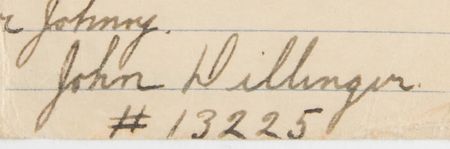 r Johnny.
John Dillinger.
# 13225